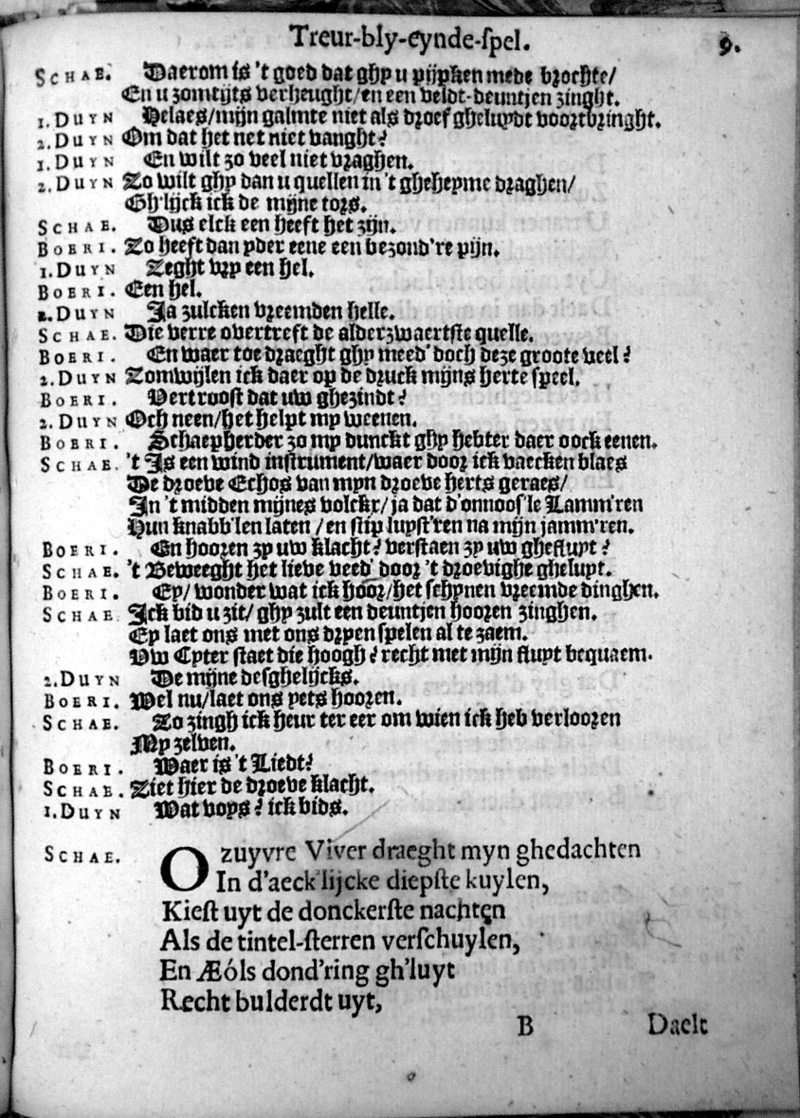 Treur-bly-eynde-spel. 9.
SCHAE. Daerom is 't goed dat ghy u pijpken mede brochte/
En u zomtijts verheught/en een veldt-deuntjen zinght.
1. DUYN Helaes/mijn galmte niet als droef gheluydt voortbringht.
2. DUYN Om dat het net niet vanght?
1. DUYN En wilt zo veel niet vraghen.
2. DUYN Zo wilt ghy dan u quellen in 't gheheyme draghen/
Gh'lijck ick de mijne tors.
SCHAE. Dus elck een heeft het zijn.
BOERI. Zo heeft dan yder eene een bezond're pijn.
1. DUYN Zeght vry een hel.
BOERI. Een hel.
2. DUYN Ja zulcken vreemden helle.
SCHAE. Die verre overtreft de alderzwaertste quelle.
BOERI. En waer toe draeght ghy meed' doch deze groote veel?
2. DUYN Zomwijlen ick daer op de druck mijns herte speel.
BOERI. Vertroost dat uw ghezindt?
2. DUYN Och neen/het helpt my weenen.
BOERI. Schaepherder zo my dunckt ghy hebter daer oock eenen.
SCHAE. 't Is een wind instrument/waer door ick vaecken blaes
De droeve Echos van myn droeve herts geraes/
In 't midden mijnes volckx/ja dat d'onnoos'le Lamm'ren
Hun knabb'len laten/en stip luyst'ren na mijn jamm'ren.
BOERI. En hooren zy uw klacht? verstaen zy uw ghefluyt?
SCHAE. 't Beweeght het lieve veed' door 't droevighe gheluyt.
BOERI. Ey/wonder wat ick hoor/het schynen vreemde dinghen.
SCHAE Ick bid u zit/ghy zult een deuntjen hooren zinghen.
Ey laet ons met ons dryen spelen al te zaem.
Uw Cyter staet die hoogh? recht met mijn fluyt bequaem.
2. DUYN De mijne desghelijcks.
BOERI. Wel nu/laet ons yets hooren.
SCHAE. Zo zingh ick heur ter eer om wien ick heb verlooren
My zelven.
BOERI. Waer is 't Liedt?
SCHAE. Ziet hier de droeve klacht.
1. DUYN Wat voys? ick bids.
SCHAE. O zuyvre Viver draeght myn ghedachten
In d'aeck'lijcke diepste kuylen,
Kiest uyt de donckerste nachten
Als de tintel-sterren verschuylen,
En Æóls dond'ring gh'luyt
Recht bulderdt uyt,
B Daelt